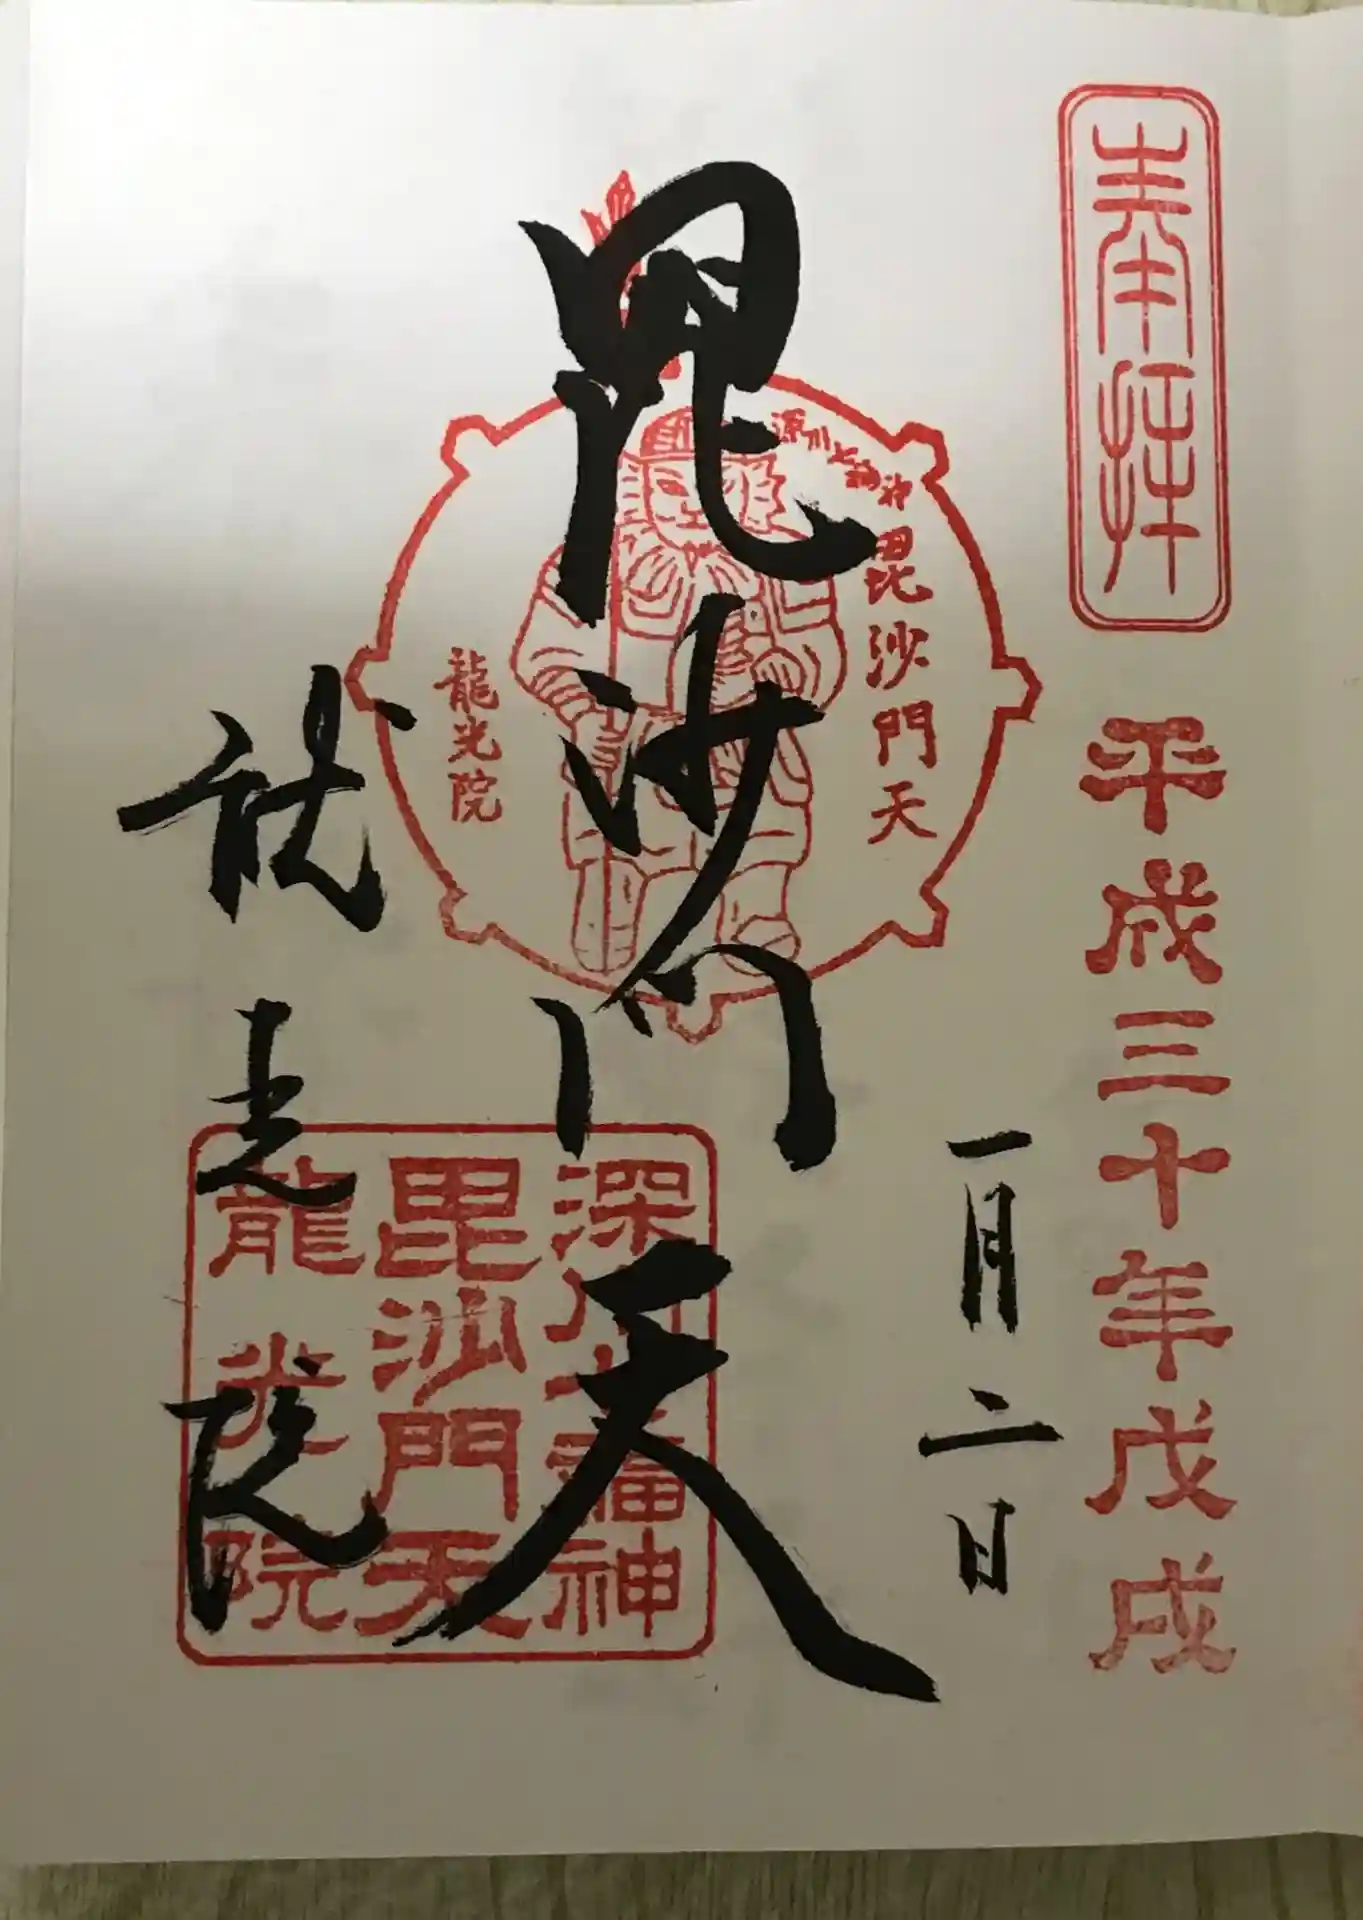 奉拝
平成三十年戊戌
一月二日
毘沙門天
深川七福神
毘沙門天
龍光院
深川七福神
毘沙門天
龍光院
龍光院